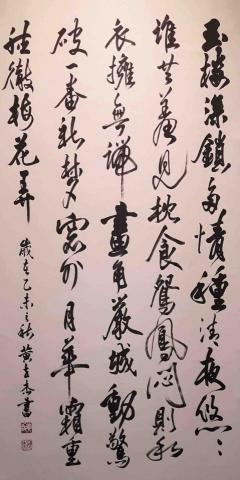 玉樓深鎖多情種清夜悠悠
誰共羞見枕衾鴛鳳悶則和
衣擁無端畫角嚴城動驚
破一番新夢窗外月華霜重
聽徹梅花弄
歲在乙未之秋黃書